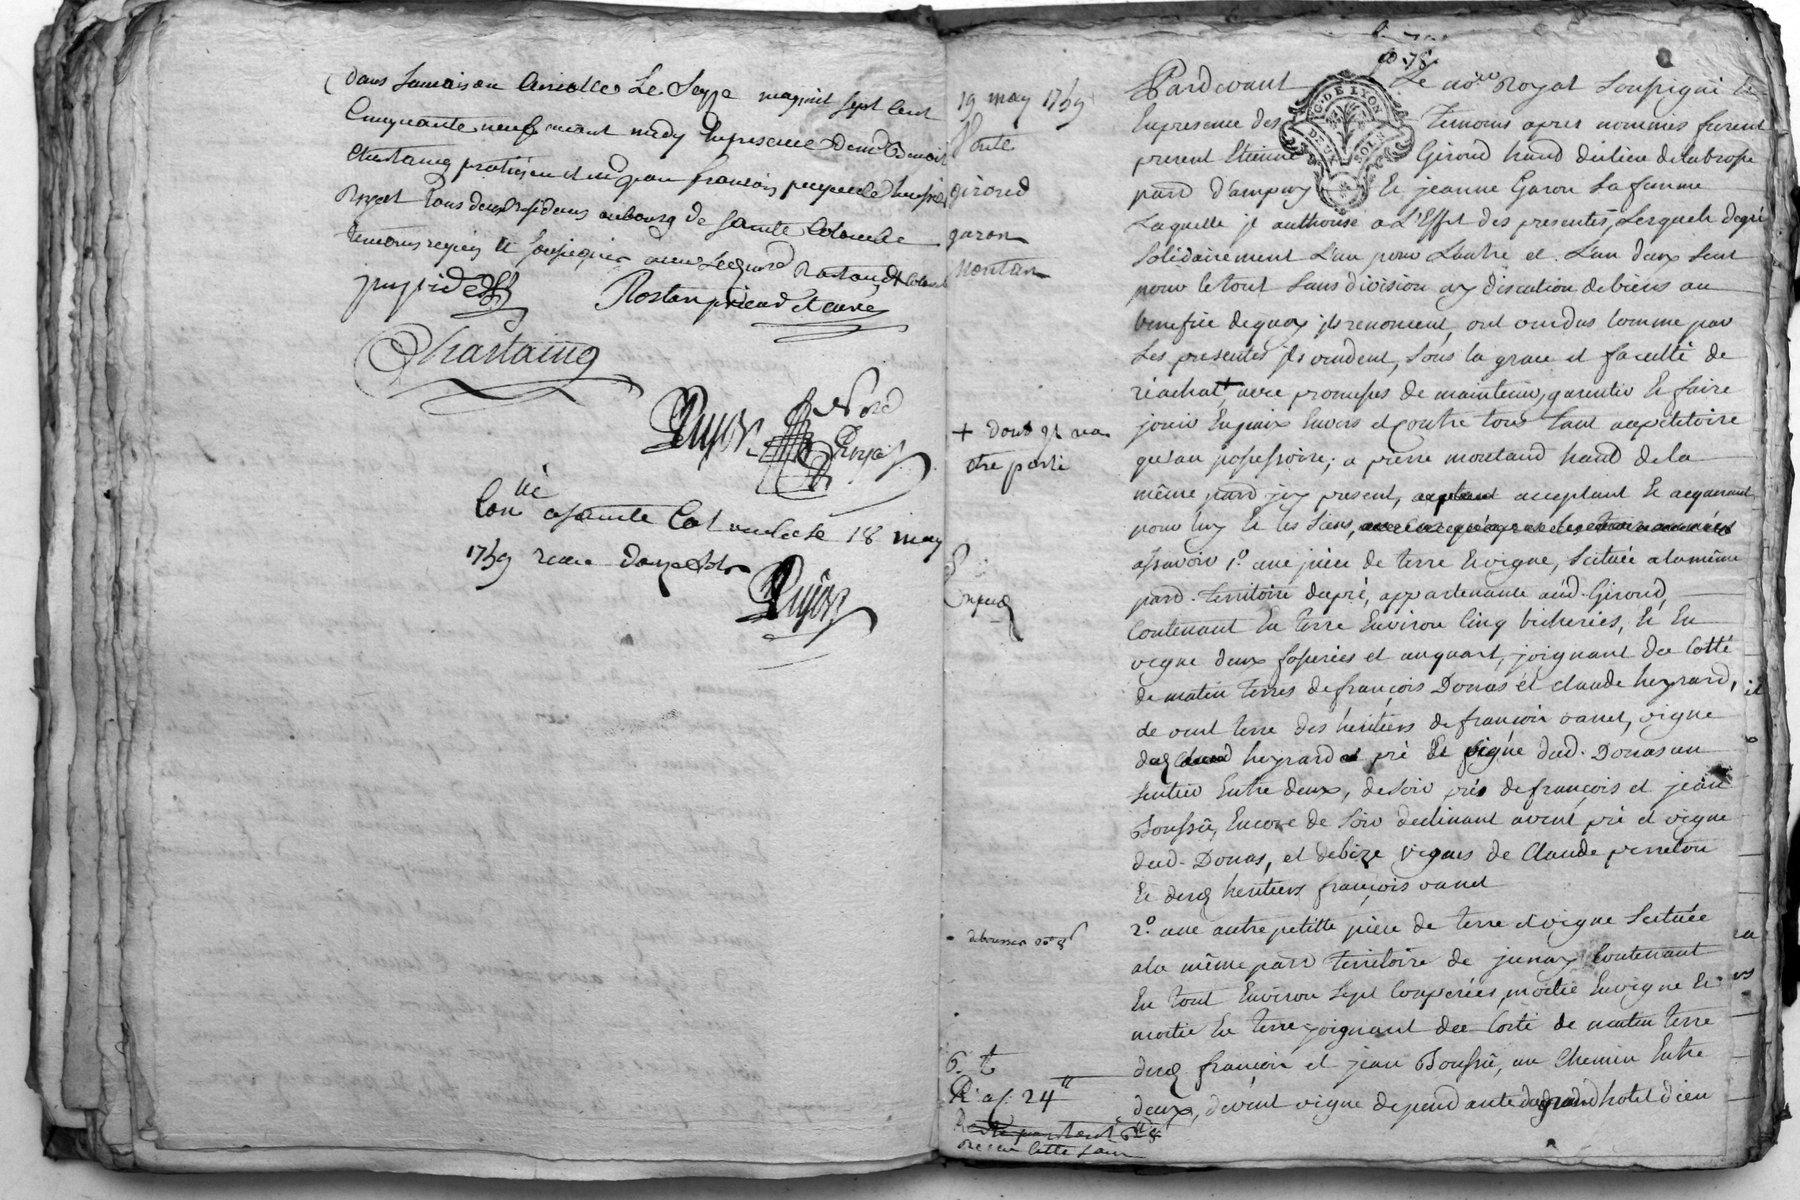 dans sa maison curialle Le Seize may mil sept cent
Cinquante neuf avant midy En presence de m.e Benoit
Chastaing praticien et de s.r jean francois huissier
Royal tous deux residans au bourg de Sainte Colombe
temoins requis et soussignés avec led. s.r Rostan
Rostan prieur et curé
Chastaing
Puyos No.re Royal
Con.lé a sainte Colombe le 18 may
1759 recu douze sols
Puyos
19 may 1759
Vente
giroud
garon
Montan
+ dont
otre parte
Exped.
debourser
6. t
R. a s. 24
cette
Pardevant Le no.re Royal soussigné &
En presence des temoins apres nommés furent
present Etienne Giroud hand du lieu de la brosse
parr d'ampuy & jeanne Garon sa femme
Laquelle il authorise a L'Effet des presentes, Lesquels de gré
solidairement L'un pour L'autre et L'un d'eux seul
pour le tout sans division ny discution de biens au
benefice de quoy ils renoncent, ont vendus comme par
Les presentes ils vendent, sous la grace et faculté de
réachat + avec promesses de maintenir, garentir & faire
jouir En paix Envers et contre tous tant au petitoire
qu'au posessoire; a pierre montand hand de la
même parr icy present, acceptant & acquerant
pour luy & les siens,
assavoir 1.o une piece de terre & vigne, scituée a la même
parr. territoire du pré, appartenante aud. Giroud,
Contenant En terre Environ Cinq bicherées, & En
vigne deux foserées et un quart, joignant de Cotté
de matin terres de françois Donas et claude heyrard,
de vent terre des heritiers de françois vanel, vigne
dud. heyrard pré & vigne dud. Donas un
sentier Entre deux, de soir prés de françois et jean
Bonssû, Encore de soir declinant a vent pré et vigne
dud. Donas, et de bize vignes de Claude perreton
& desd. heritiers françois vanel
2.o une autre petitte piece de terre et vigne scituée
a la même parr territoire de junay Contenant
En tout Environ sept Couperées, moitié En vigne &
moitié En terre joignant de Cotté de matin terre
desd. françois et jean Bonssû, un Chemin Entre
deux, de vent vigne dependante du grand hotel dieu
G. DE LYON
DEUX SOLS